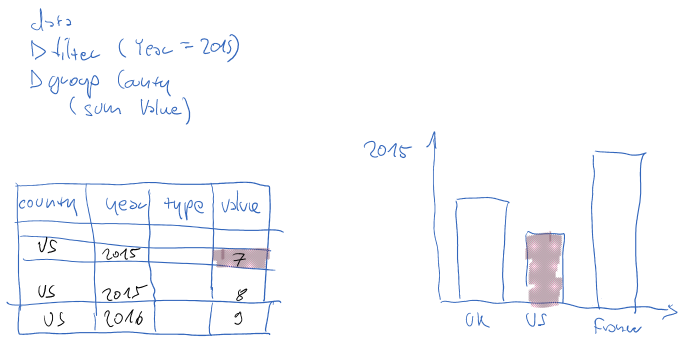 data
▷ filter (Year = 2015)
▷ group County
(sum Value)
2015
county year type value
US 2015 7
US 2015 8
US 2016 9
UK US France